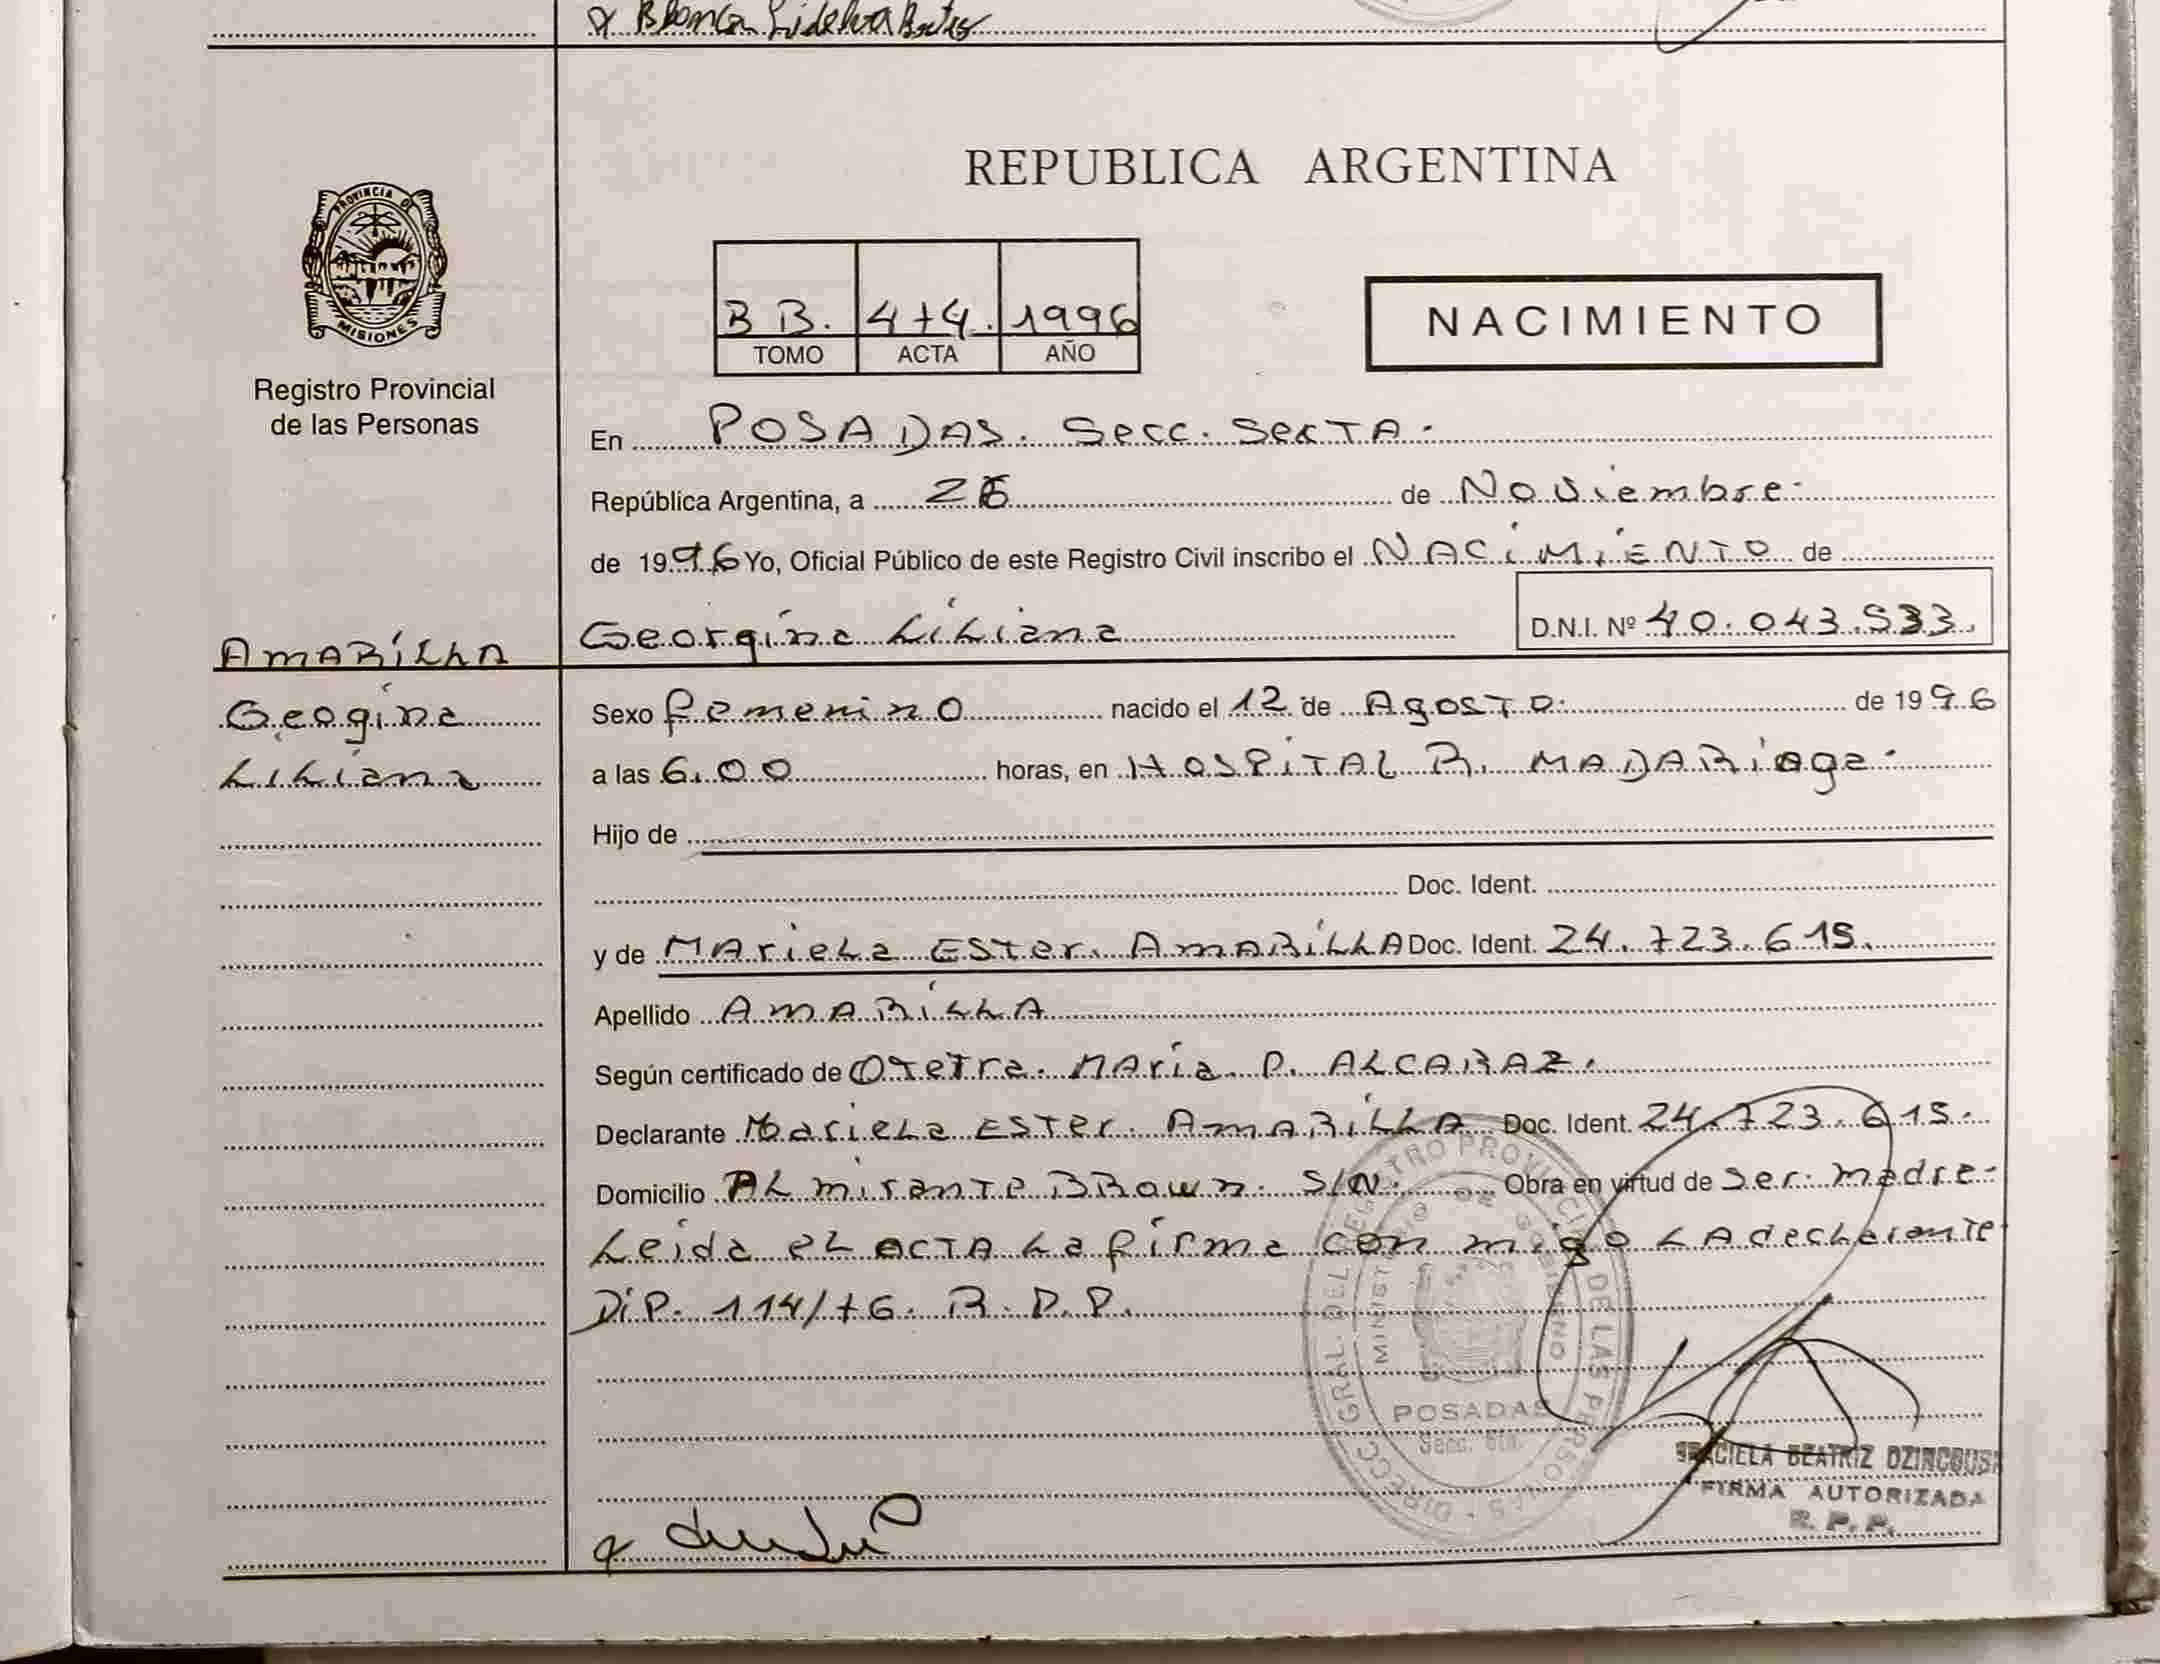 PROVINCIA DE
MISIONES
Registro Provincial
de las Personas
REPUBLICA ARGENTINA
BB. 474. 1996
TOMO ACTA AÑO
NACIMIENTO
En POSADAS. Secc. SexTA.
República Argentina, a 26 de Noviembre
de 1996 Yo, Oficial Público de este Registro Civil inscribo el NACIMIENTO de
Georgina Liliana D.N.I. Nº 40.043.533.
AMARILLA
Geogina
Liliana
Sexo femenino nacido el 12 de Agosto de 1996
a las 6.00 horas, en HOSPITAL R. MADARiaga
Hijo de
Doc. Ident.
y de MArieLa ESTer. AMARILLA Doc. Ident. 24.723.615.
Apellido AMARILLA
Según certificado de OTeTra. MAria P. ALCARAZ.
Declarante MarieLa ESTer. AMARILLA Doc. Ident. 24.723.615.
Domicilio ALmiranTe BROwn. S/N. Obra en virtud de Ser. madre
Leida eL ACTA La firma con migo LA decLaranTe
DiP. 114/76. R.P.P.
DIRECC. GRAL. DEL REGISTRO PROVINCIAL DE LAS PERSONAS
MINISTERIO DE GOBIERNO
POSADAS
Secc. 6ta.
GRACIELA BEATRIZ
FIRMA AUTORIZADA
R. P. P.